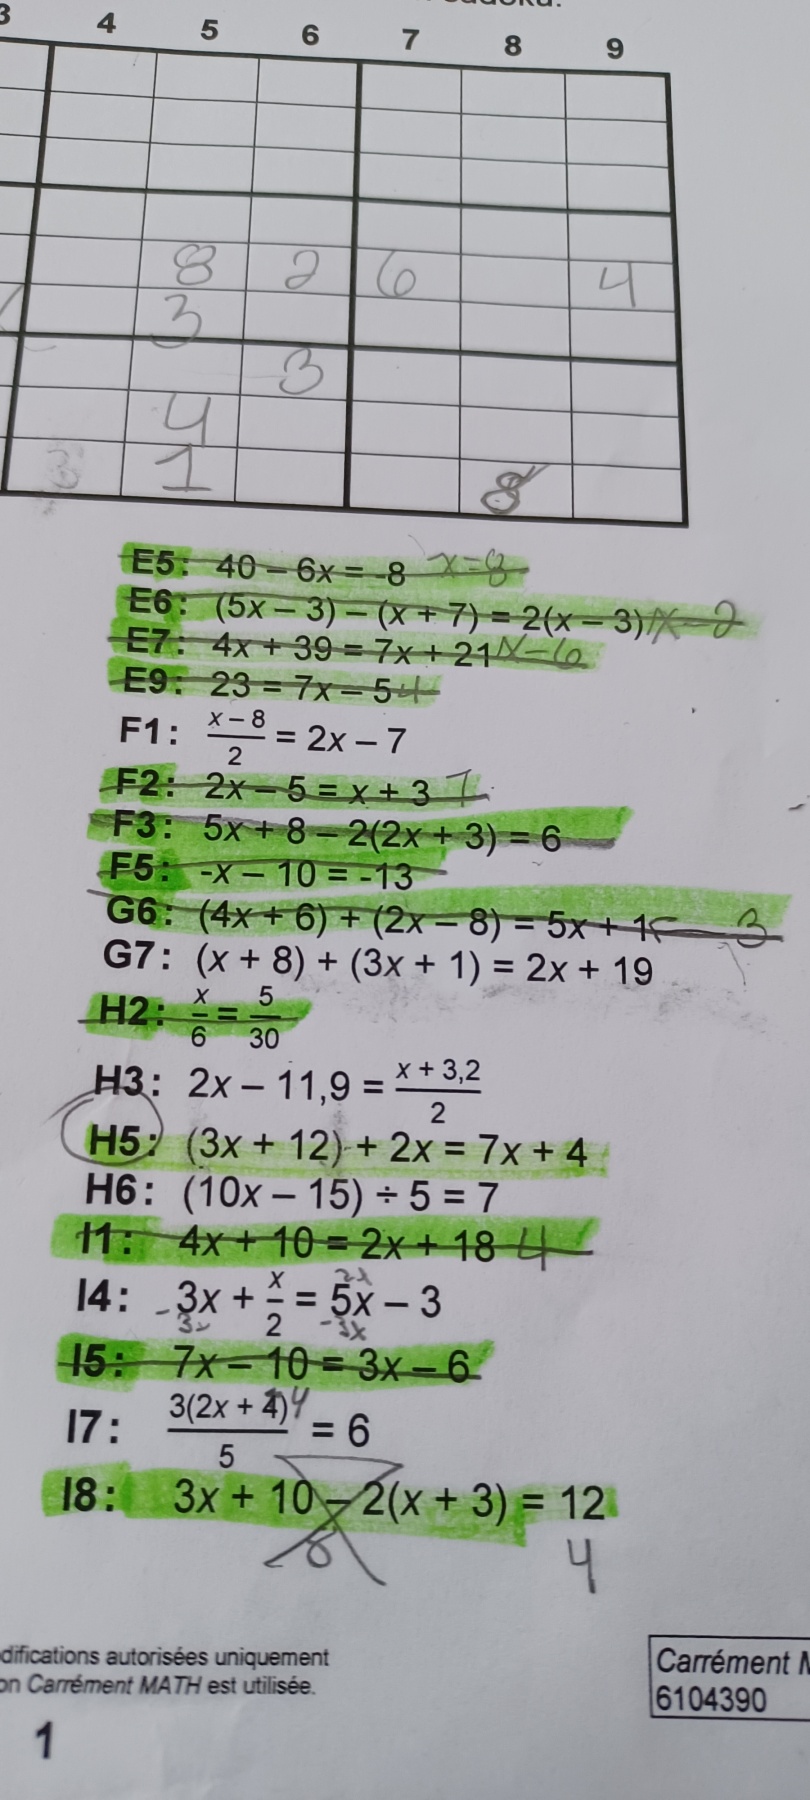 sudoku.
3 4 5 6 7 8 9
8 2 6 4
3
3
4
3 1 8
E5: 40 – 6x = -8 x=8
E6: (5x – 3) – (x + 7) = 2(x – 3) x=2
E7: 4x + 39 = 7x + 21 x=6
E9: 23 = 7x – 5 4
F1: (x – 8)/2 = 2x – 7
F2: 2x – 5 = x + 3
F3: 5x + 8 – 2(2x + 3) = 6
F5: -x – 10 = -13
G6: (4x + 6) + (2x – 8) = 5x + 1 3
G7: (x + 8) + (3x + 1) = 2x + 19
H2: x/6 = 5/30
H3: 2x – 11,9 = (x + 3,2)/2
H5: (3x + 12) + 2x = 7x + 4
H6: (10x – 15) ÷ 5 = 7
I1: 4x + 10 = 2x + 18 4
2x
I4: 3x + x/2 = 5x – 3
-3x -3x
I5: 7x – 10 = 3x – 6
I7: 3(2x + 4)/5 = 6 4
I8: 3x + 10 – 2(x + 3) = 12
8 4
difications autorisées uniquement
on Carrément MATH est utilisée.
Carrément M
6104390
1